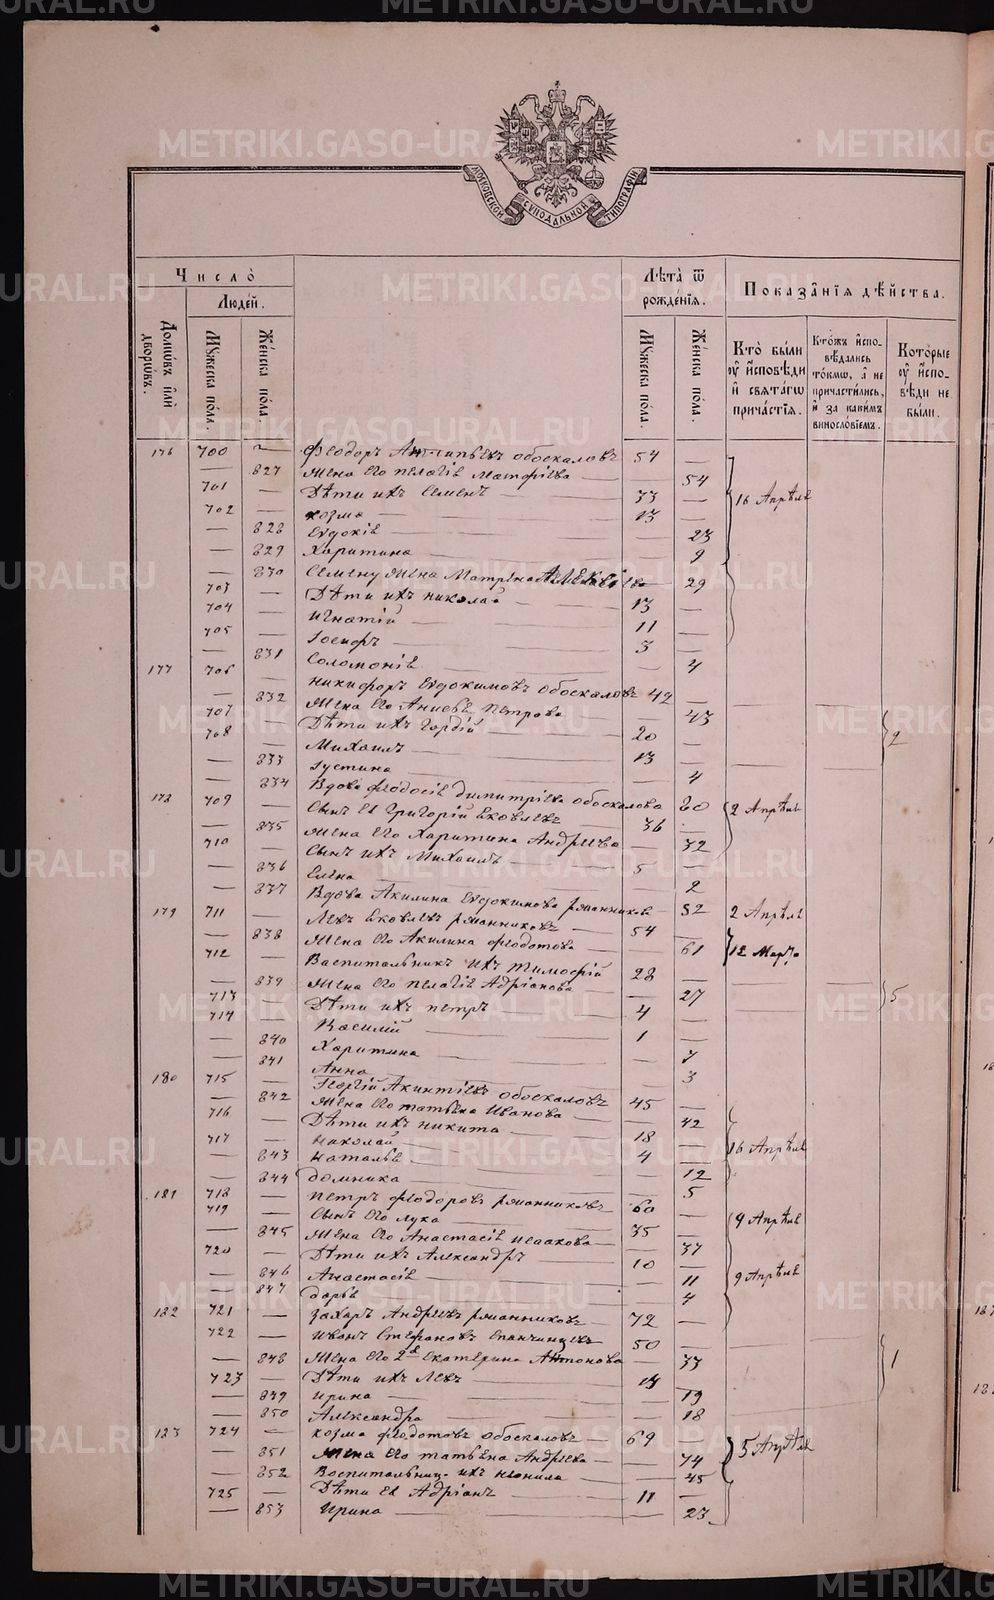 METRIKI.GASO-URAL.RU
МОСКОВСКОЙ СѴНОДАЛЬНОЙ ТИПОГРАФІИ
Число̀
Людей.
Домѡвъ и҆лѝ дворѡвъ.
Мꙋжеска по́ла.
Же́нска по́ла.
Лѣта̀ ѿ рожде́нїѧ.
Мꙋжеска по́ла.
Же́нска по́ла.
Показа̑нїѧ дѣ́йства.
Кто̀ бы́ли ᲂу҆ и҆сповѣди и҆ свѧта́гѡ прича́стїѧ.
Кто́жъ и҆спо-вѣ́дались то́кмѡ, а҆ не причасти́лись, и҆ за каки́мъ винослові́емъ.
Кото́рые ᲂу҆ и҆спо-вѣди не бы́ли.
176 700 — Феодоръ Антипьевъ Обоскаловъ 54 —
— 827 Жена его Пелагія Матфіева — 54
701 — Дѣти ихъ Семенъ 33 — 16 Апрѣля
702 — Козма 13 —
— 828 Евдокія — 23
— 829 Харитина — 9
— 830 Семену жена Матрена Алексіева — 29
703 — Дѣти ихъ Николай 13 —
704 — Игнатій 11 —
705 — Іосифъ 3 —
— 831 Соломонія — 4
177 706 — Никифоръ Евдокимовъ Обоскаловъ 42
— 832 Жена его Анисья Петрова — 43
707 — Дѣти ихъ Гордій 20 — 2
708 — Михаилъ 13 —
— 833 Іустина — 4
— 834 Вдова Феодосія Димитріева Обоскалова 80 2 Апрѣля
178 709 — Сынъ ея Григорій Яковлевъ 36
— 835 Жена его Харитина Андреева — 32
710 — Сынъ ихъ Михаилъ 5 —
— 836 Елена — 2
— 837 Вдова Акилина Евдокимова Ряпанникова — 52 2 Апрѣля
179 711 — Левъ Яковлевъ 54 —
— 838 Жена его Акилина Феодотова — 61 12 Марта
712 — Васпитальникъ ихъ Тимофій 28 —
— 839 Жена его Пелагія Адріанова — 27 5
713 — Дѣти ихъ Петръ 4 —
714 — Василий 1 —
— 840 Харитина — 7
— 841 Анна — 3
180 715 — Георгій Акинтіевъ Обоскаловъ 45 —
— 842 Жена его Татьяна Иванова — 42
716 — Дѣти ихъ Никита 18 —
717 — Николай 4 — 16 Апрѣля
— 843 Наталья — 12
— 844 Домника — 5
181 718 — Петръ Феодоровъ 60 —
719 — Сынъ его Лука 35 — 9 Апрѣля
— 845 Жена его Анастасія Исаакова — 37
720 — Дѣти ихъ Александръ 10 —
— 846 Анастасія — 11 9 Апрѣля
— 847 Дарья — 4
182 721 — Захаръ Андреевъ 72 —
722 — Иванъ Стефановъ Епанчинцевъ 50 —
— 848 Жена его 2я Екатерина Антонова — 33 1
723 — Дѣти ихъ Левъ 14 —
— 849 Ирина — 19
— 850 Александра — 18
183 724 — Козма Феодотовъ Обоскаловъ 69 — 5 Апрѣля
— 851 Жена его Татьяна Андреева — 74
— 852 Воспитальниц. ихъ Неонила — 45
725 — Дѣти ея Адріанъ 11 —
— 853 Ирина — 23